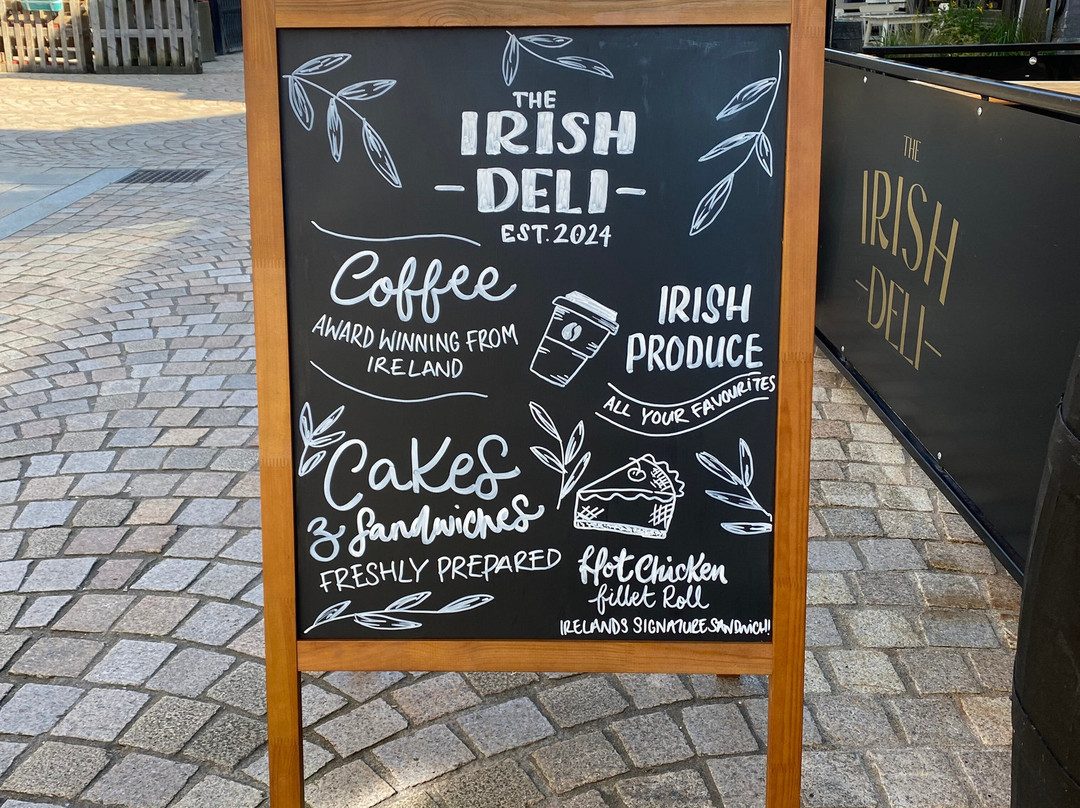 THE
IRISH
- DELI -
EST. 2024
Coffee
AWARD WINNING FROM
IRELAND
IRISH
PRODUCE
ALL YOUR FAVOURITES
Cakes
& Sandwiches
FRESHLY PREPARED
Hot Chicken
fillet Roll
IRELANDS SIGNATURE SANDWICH!
THE
IRISH
-DELI-